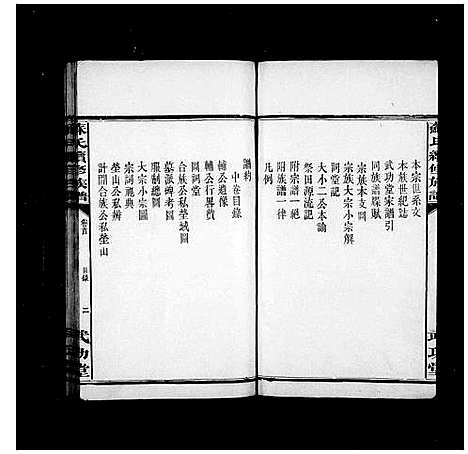 蘇氏續修族譜
武功堂
本宗世系文
本族世紀誌
武功堂家譜引
同族譜牒賦
宗族本支圖
宗族大宗小宗解
祠堂記
大小二公本論
祭田源流記
附宗譜一絕
附族譜一律
凡例
譜約
中卷目錄
輔公遺像
輔公行畧賛
圖祠堂
合族公私塋域圖
墓派碑考圖
服制總圖
大宗小宗圖
宗祠祀典
塋山公私辨
計開合族公私塋山
蘇氏續修族譜
卷首
目錄
二
武功堂